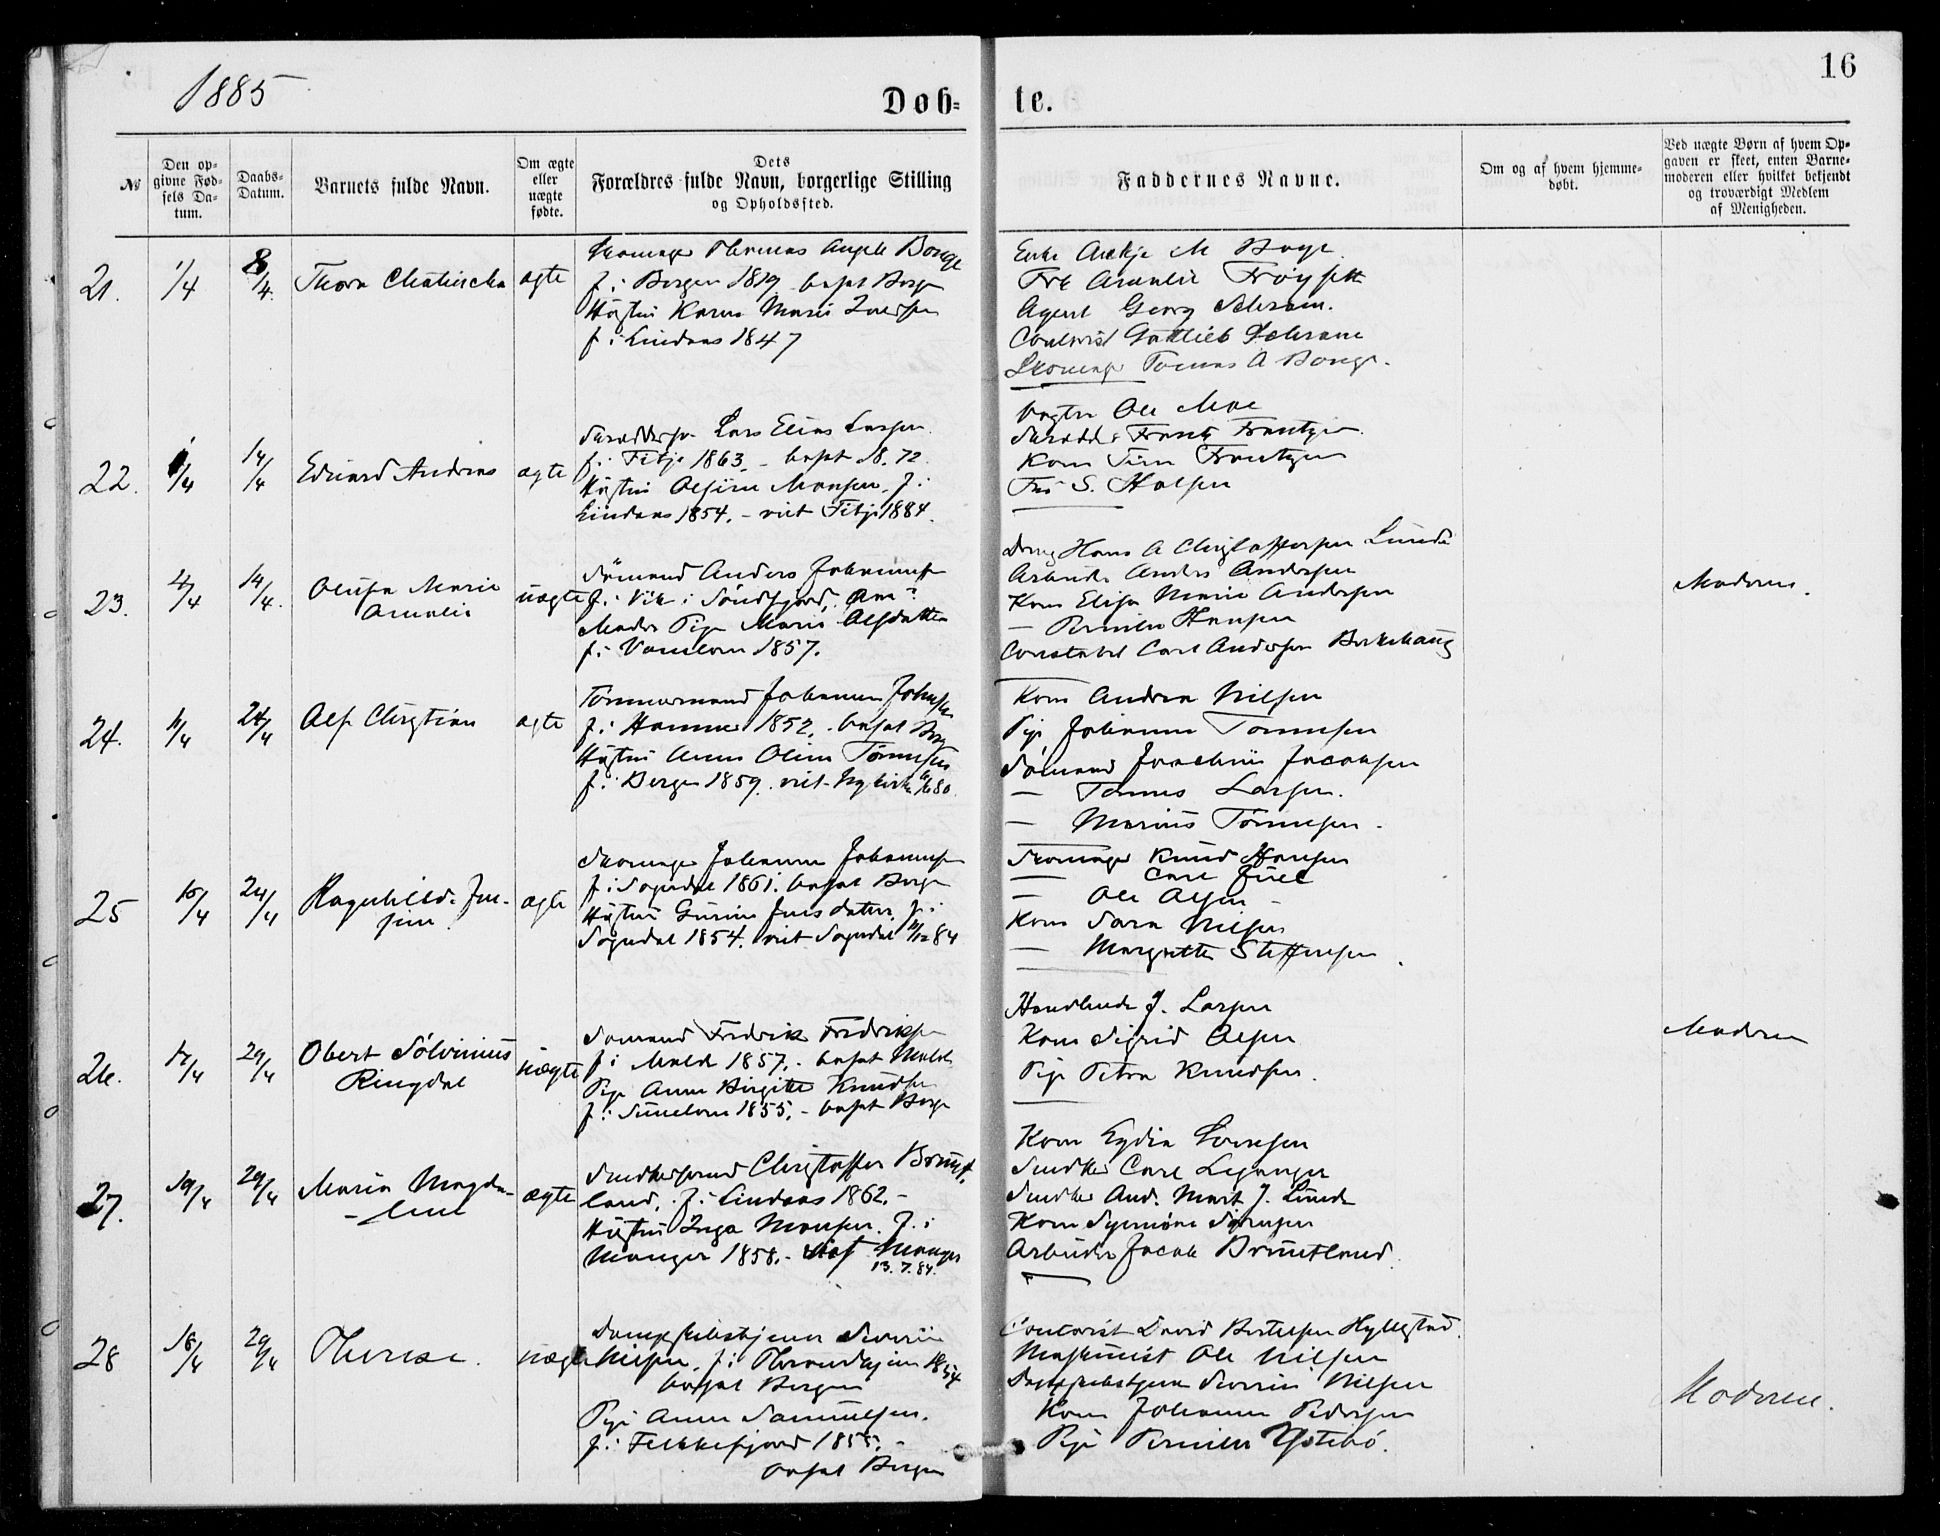 1885
16
Døb-
te.
№
Den op-
givne Fød-
sels Da-
tum.
Daabs-
Datum.
Barnets fulde Navn.
Om ægte
eller
uægte
fødte.
Dets
Forældres fulde Navn, borgerlige Stilling
og Opholdssted.
Faddernes Navne.
Om og af hvem hjemme-
døbt.
Ved uægte Børn af hvem Op-
gaven er skeet, enten Barne-
moderen eller hvilket bekjendt
og troværdigt Medlem
af Menigheden.
21.
1/4
8/4.
Thora
ægte
Skomager Thomas Angell
f. i Bergen 1819 bosat Berg
Hustru Karen Marie Iversen
f i Lindaas 1847
Frk Amalie Frøyseth
Agent Georg Schram.
Contorist Gottlieb Schram
Skomager Tomas A
22.
1/4
14/4
Edvard Andreas
ægte
Lars Elias Larsen
f. i Fitje 1863. - bosat N. 72.
Hustru Olsine Monsen. f. i
Lindaas 1854. - viet Fitje 1884.
Vogter Ole Moe
Frantz Frantzen
Kone Frantzen
S. Halsen
23.
4/4
14/4.
Olufa Marie
Amalie
uægte
Sømand Anders Johannessen
f. i Vik i Søndfjord.
Moder Pige Marie Olsdatter
f. i 1857.
Dreng Hans A Christoffersen Lunde
Arbeider Anders Andersen
Kone Elisa Marie Andersen
— Pernille Hansen
Constabel Carl Andersen
Moderen.
24.
11/4
24/4
Alf Christian
ægte
Tømmermand Johannes Johnsen
f. i Hammer 1852. - bosat Berg
Hustru Anna Oline Tønnesen
f. i Bergen 1859. viet Nykirke
Kone Andrea Nilsen
Pige Johanne Tønnesen
Sømand Joachim Jacobsen
— Tomas Larsen.
— Marius Tønnesen.
25
10/4
24/4
Ragnhild Jen-
sine
ægte
Skomager Johannes Johannessen
f. i Sogndal 1861. bosat Berge
Hustru Gurine Jensdatter. f. i
Sogndal 1854. viet Sogndal 84
Skomager Knud Hansen
— Carl Juell
— Ole Olsen -
Kone Sara Nilsen
— Margrethe Steffensen.
26.
17/4
29/4
Obert Sølvinius
Ringdal
uægte
Sømand Fredrik Fredriksen
f i Molde 1857. - bosat Molde
Pige Anna Birgitte Knudsen
f. i 1855. - bosat Berge
Handlende J. Larsen
Kone Sigrid Olsen
Pige Petra Knudsen.
Moderen
27.
19/4
29/4
Maria Magda-
-lene
ægte
Snedkersvend Christoffer Bruntland.
f. i Lindaas 1862. -
Hustru Inga Monsen. f. i
Manger 1858. - Manger
13. 7. 84.
Kone Sørensen
Snedker Carl Leganger
Snedker And. Mart. J. Lunde
Kone Symøne Sørensen
Arbeider Jacob Bruntland.
28
18/4
29/4
Therese.
uægte
Dampskibstjener Severin
Nilsen. f. i Throndhjem 1854
bosat Bergen
Pige Anna Samuelsen.
f. i Flekkefjord 1855. -
bosat Bergen
Contorist David Bertelsen Hyllestad.
Maskinist Ole Nilsen
Dampskibstjener Severin Nilsen
Kone Johanne Pedersen
Pige Pernille Ystebø.
Moderen.